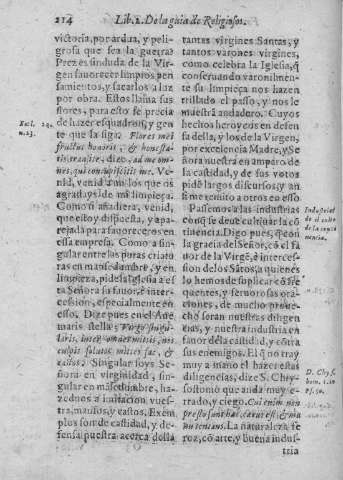 214 Lib. 2. De la guia de Religiosos.
victoria, por ardua, y peli-
grosa que sea la guerra?
Prez es sin duda de la Vir-
gen fauorecer limpios pen
samientos, y sacarlos a luz
por obra. Estos llama sus
flores, para esto se precia
de hazer esquadrõs, y gen-
te que la siga. Flores mei
fructus honoris, & honesta-
tis, transite, dize, ad me om-
nes, qui concupiscitis me. Ve-
nid, venid a mi los que os
agradays de mi limpieza.
Como si añadiera, venid,
que estoy dispuesta, y apa-
rejada para fauoreceros en
essa empresa. Como a sin-
gular entre las puras criatu
ras en mansedumbre, y en
limpieza, pide la Iglesia a es
ta Señora su fauor, è inter-
cession, especialmente en
esso. Dize pues en el Aue
maris stella; Virgo singu-
laris, inter omnes mitis, nos
culpis solutos, mites fac, &
castos. Singular soys Se-
ñora en virginidad, sin-
gular en mansedumbre, ha-
zednos a imitacion vues-
tra, mansos, y castos. Exem
plos son de castidad, y de-
fensa nuestra acerca della
Eccl. 24.
n. 23.
tantas virgines Santas, y
tantos varones virgines,
como celebra la Iglesia, q̃
conseruando varonilmen-
te su limpieça nos hazen
trillado el passo, y nos le
muestrã andadero. Cuyos
hechos heroycos en defen
sa della, y los de la Virgen,
por excelencia Madre, y Se
ñora nuestra en amparo de
la castidad, y de sus votos
pidẽ largos discursos, y an
si me remito a otros en esso
Passemos a las industrias
cõ q̃ se deue cultiuar la cõ
tinencia. Digo pues, q̃ con
la gracia del Señor, cõ el fa
uor de la Virgẽ, è interces-
sion de los Sãtos, a quienes
lo hemos de suplicar cõ fre
quentes, y feruorosas ora-
ciones, de mucho proue-
cho seran nuestras diligen
nas, y nuestra industria en
fauor dela castidad, y cõtra
sus enemigos. El q̃ no tray
muy a mano el hazer estas
diligencias, dize S. Chry-
sostomo que anda muy e-
rrado, y ciego.
La naturaleza fe
roz, cõ arte, y buena indus-
tria
Industrias
de el culto
de la conti
nencia.
D. Chrys.